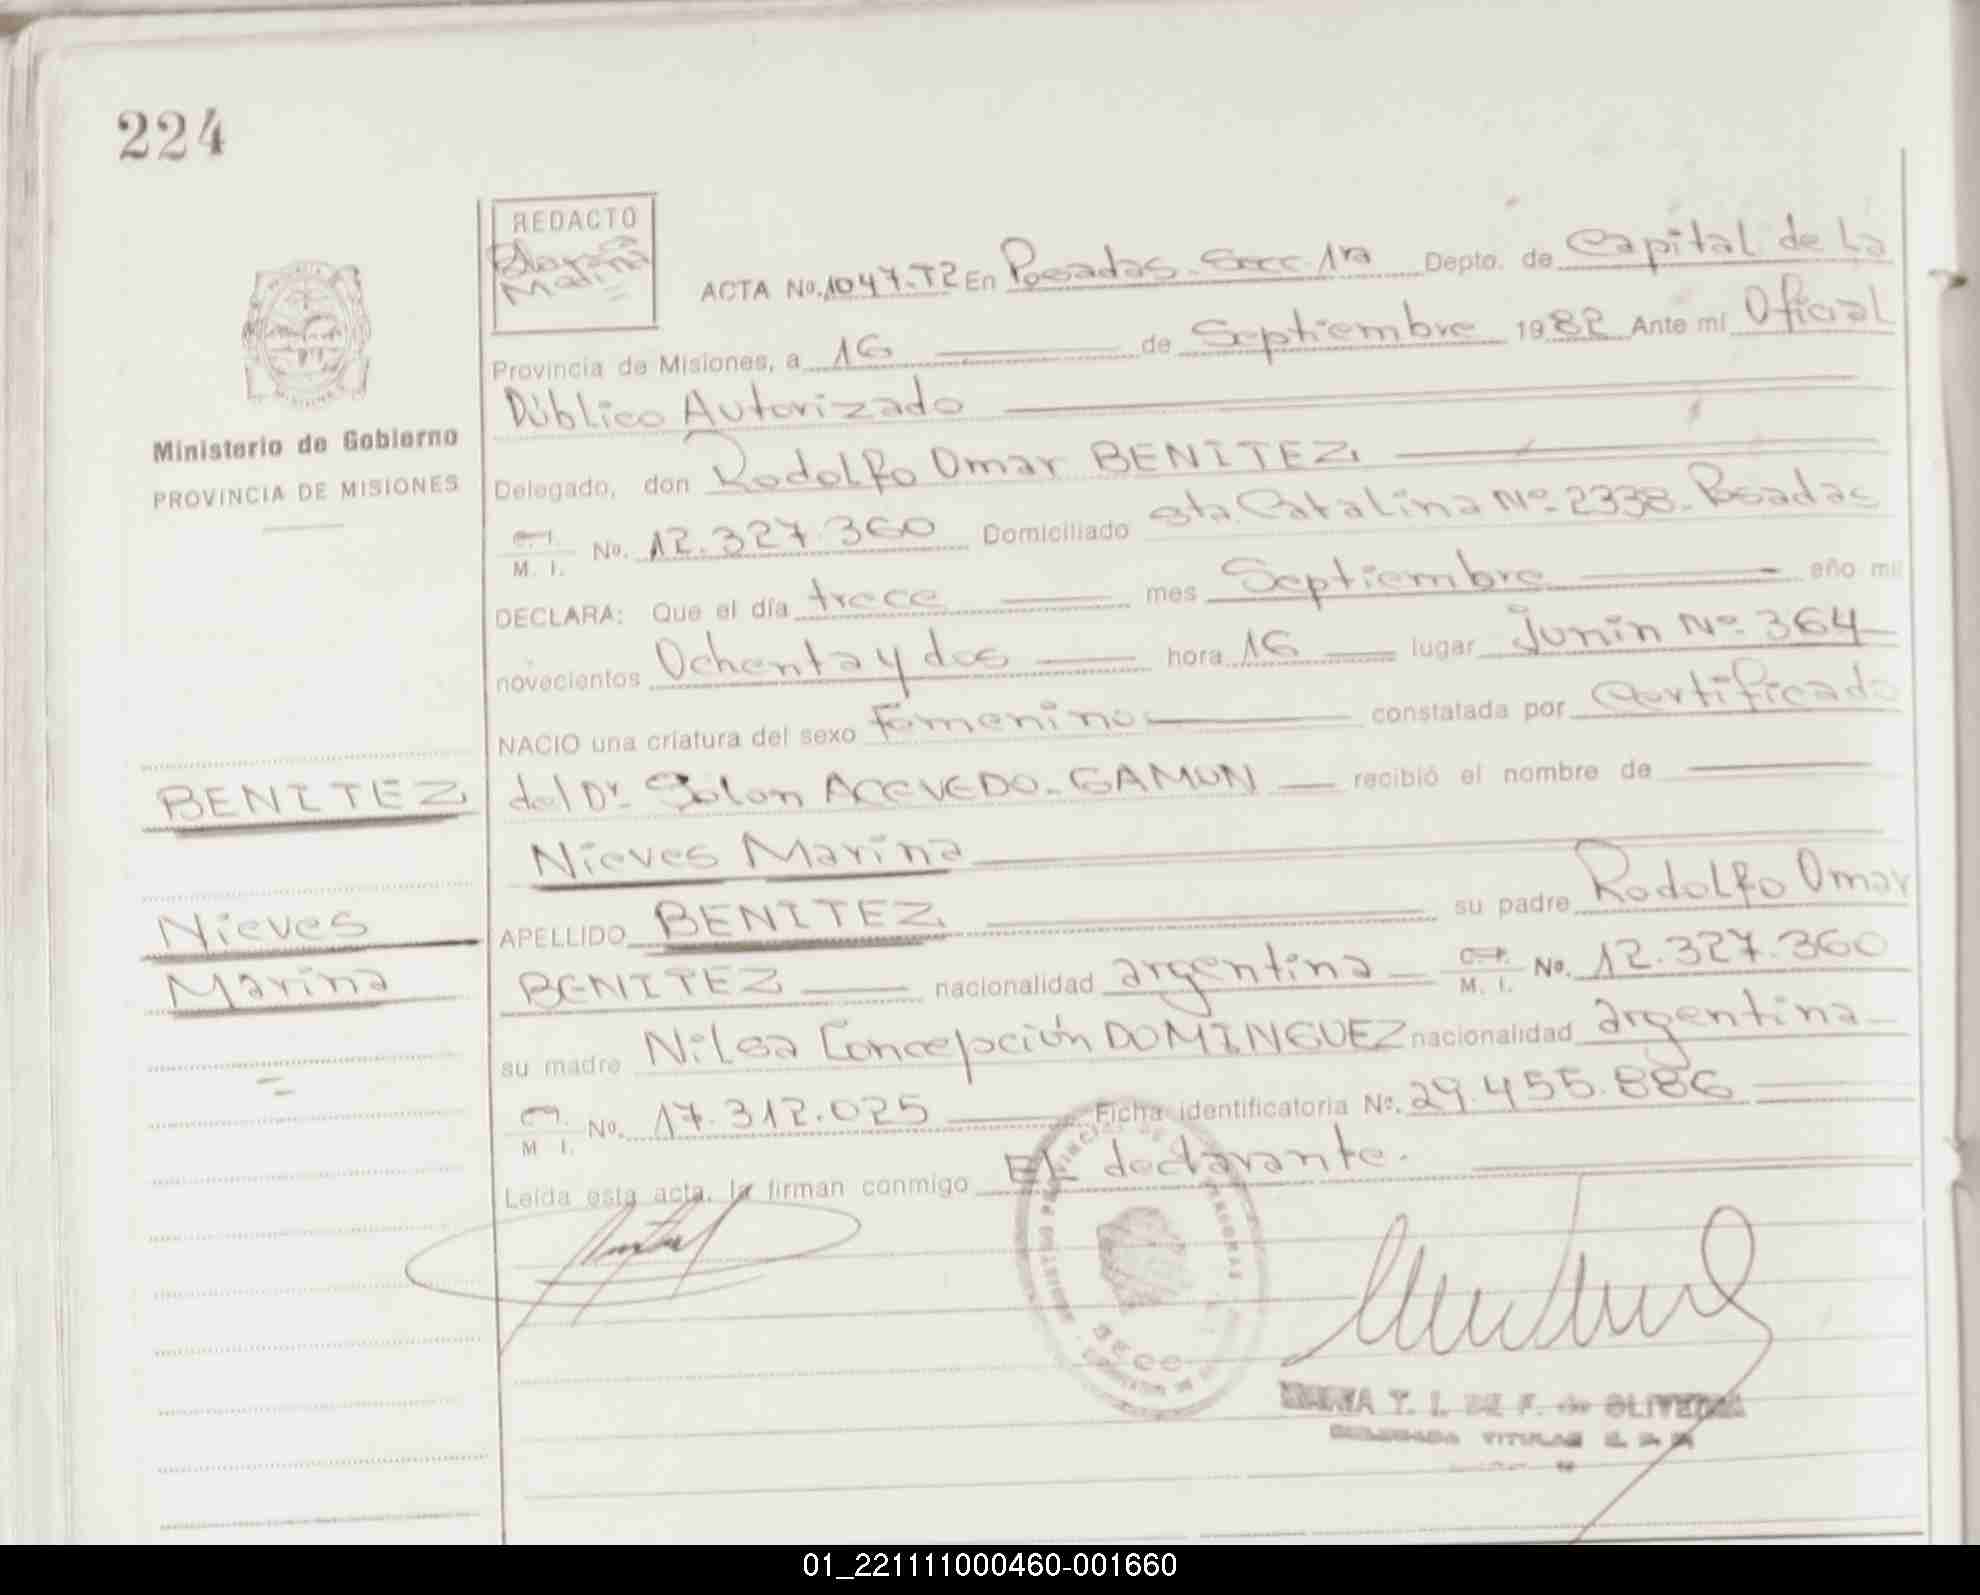 224
REDACTO
Marina
ACTA No. 1047-T2 En Posadas. Secc. 1ra Depto. de Capital de La
Provincia de Misiones, a 16 de Septiembre 1982 Ante mí Oficial
Público Autorizado
Ministerio de Gobierno
PROVINCIA DE MISIONES
Delegado, don Rodolfo Omar BENITEZ.
C. I. M. I. No. 12.327.360 Domiciliado Sta. Catalina Nº 2338. Posadas
DECLARA: Que el día trece mes Septiembre año mil
novecientos Ochenta y dos hora 16 lugar Junín Nº 364
NACIO una criatura del sexo Femenino constatada por Certificado
BENITEZ
del Dr. Solon ACEVEDO-GAMON recibió el nombre de
Nieves Marina
Nieves
APELLIDO BENITEZ. su padre Rodolfo Omar
Marina
BENITEZ nacionalidad argentina C. I. M. I. No. 12.327.360
su madre Nilsa Concepción DOMINGUEZ nacionalidad argentina
C. I. M. I. No. 17.312.025 Ficha identificatoria Nº. 29.455.886
Leída esta acta, la firman conmigo El declarante.
SECC
MARIA T. I. DE F. de OLIVEIRA
DELEGADA TITULAR
01_221111000460-001660